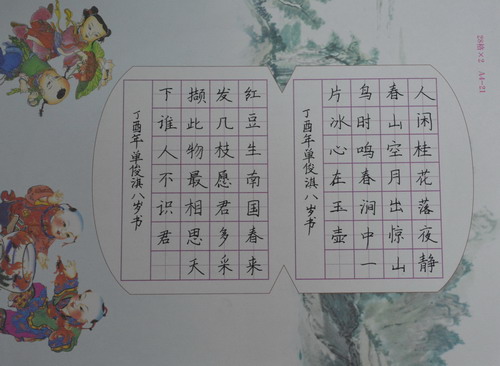 28格×2 A4-21
人闲桂花落夜静
春山空月出惊山
鸟时鸣春涧中一
片冰心在玉壶
丁酉年单俊淇八岁书
红豆生南国春来
发几枝愿君多采
撷此物最相思天
下谁人不识君
丁酉年单俊淇八岁书